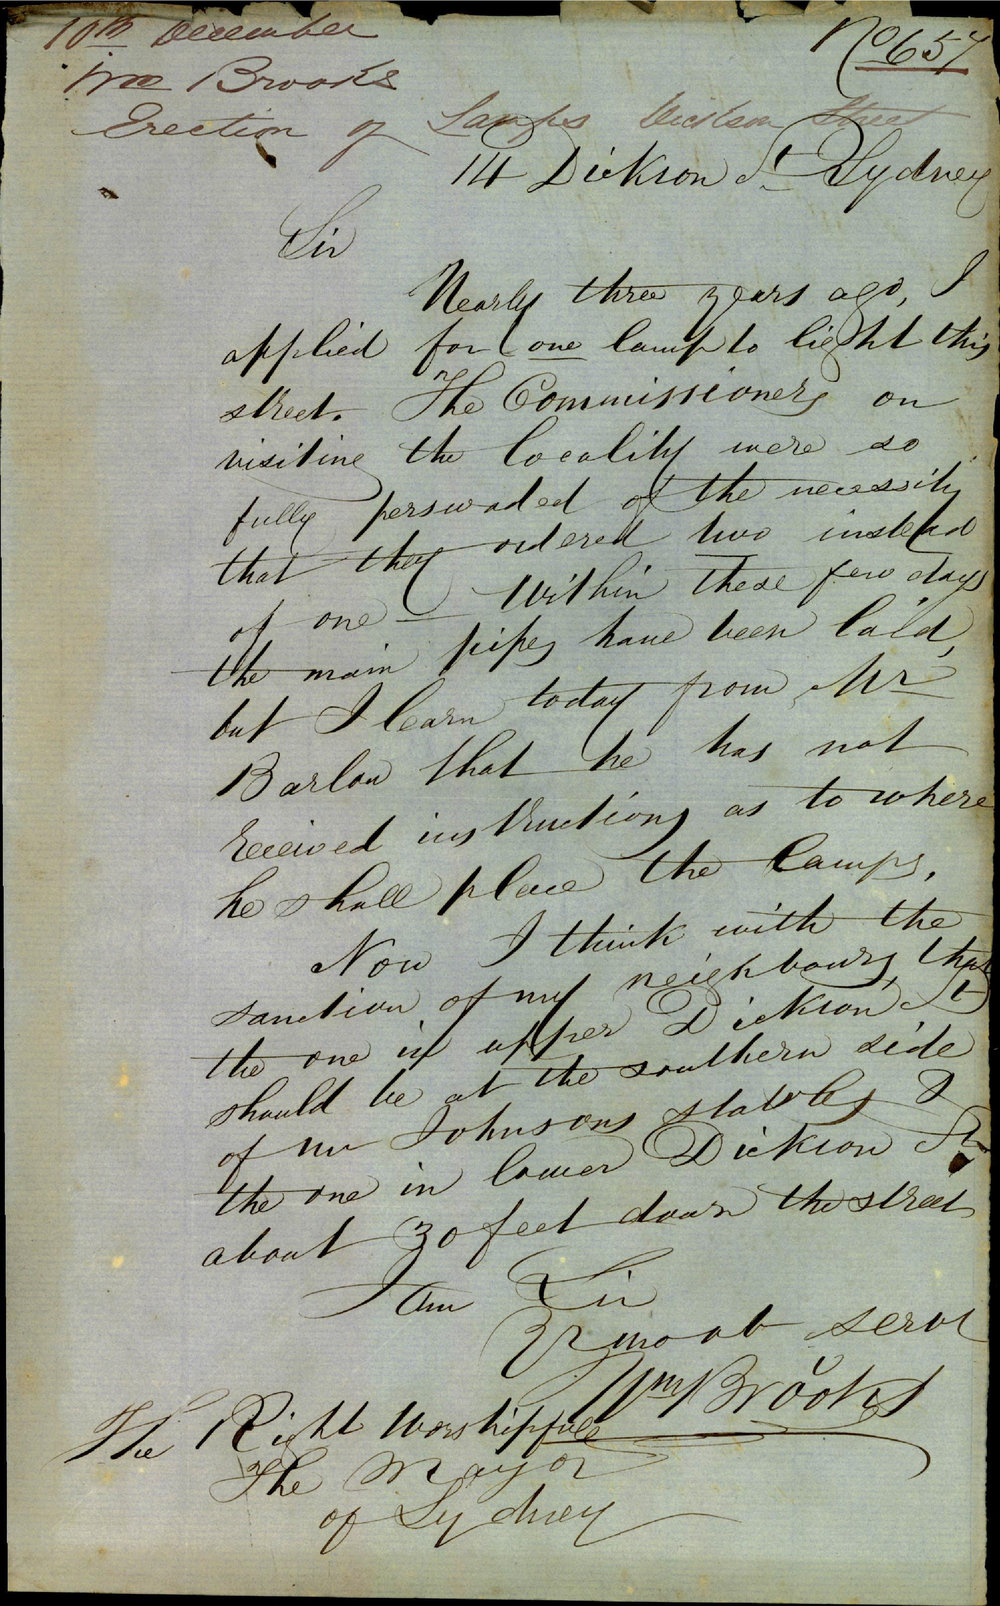 10th December
Wm Brooks
Erection of Lamps Dickson Street
No 657
14 Dickson St Sydney
Sir
Nearly three years ago, I
applied for one lamp to light this
street. The Commissioners on
visiting the locality were so
fully perswaded of the necessity
that they ordered two instead
of one — Within these few days
the main pipes have been laid,
but I learn today from Mr
Barlow that he has not
received instructions as to where
he shall place the lamps,
Now I think with the
sanction of my neighbours, that
the one in upper Dickson St
should be at the southern side
of Mr Johnsons stables &
the one in lower Dickson St
about 30 feet down the street
I am Sir
Yr most ob servt
Wm Brooks
The Right Worshipfull
The Mayor
of Sydney